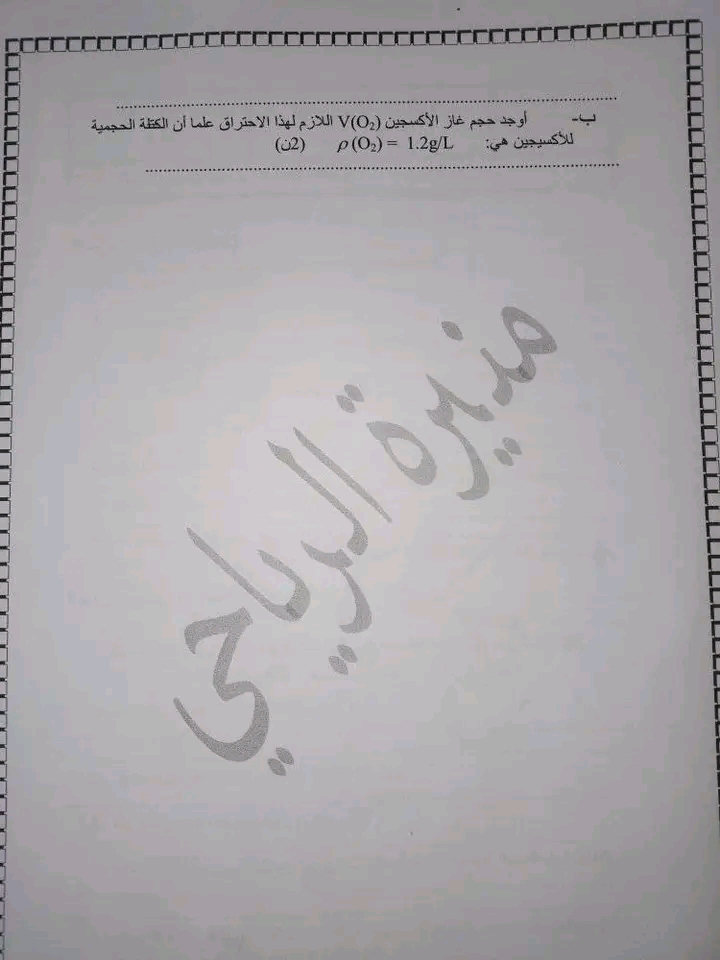 ب- أوجد حجم غاز الأكسجين V(O₂) اللازم لهذا الاحتراق علما أن الكتلة الحجمية
للأكسيجين هي: ρ (O₂) = 1.2g/L (2ن)
منيرة الرياحي